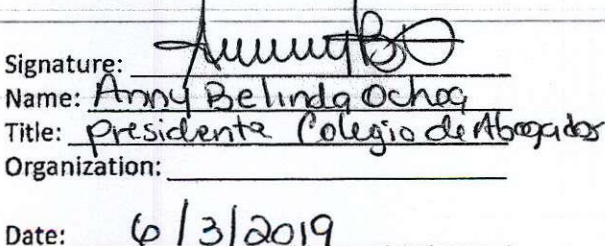 Signature:
Name: Anny Belinda Ochoa
Title: presidenta Colegio de Abogados
Organization:
Date: 6/3/2019